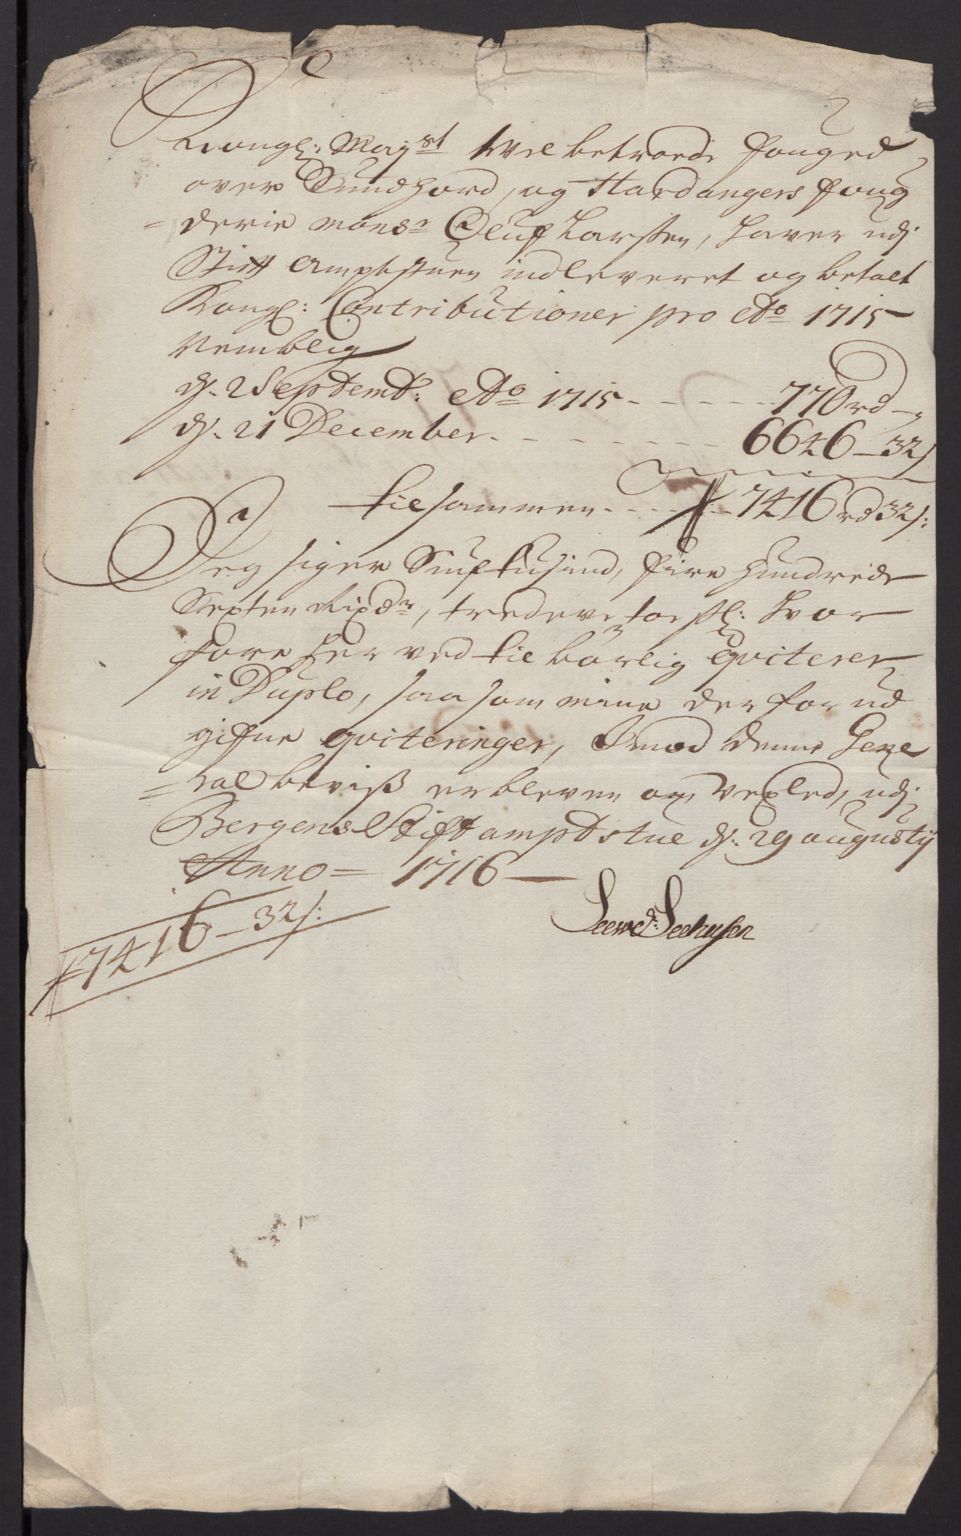 Kongl: May:st Wel betroede fouged
over Sundhord, og Hardangers foug
= derie Mons:r Oluf Larsen, haver udj
Stift Amptstuen indleveret og betalt
Kongl: Contributioner pro Ao 1715
Nemblig
d. 2 Septemb: Ao 1715 - - - - - 770 rd -
d. 21 December - - - - - - - - 6646 - 32 s
tilsammen - - - - 7416 rd 32 s:
Jeg siger Siuf tusind, fiire hundrede
Sexten Rixd:r, tredeve toe sk: Hvor
fore her ved tilbørlig qviterer
in Duplo, saasom mine der for ud
gifne qviteringer, Imod denne Gene
= ral beviß er bleven om vexled, udj
Bergens Stift ampts tue d: 29 augustij
Anno = 1716
7416 - 32 s:
Leew d: Seehusen